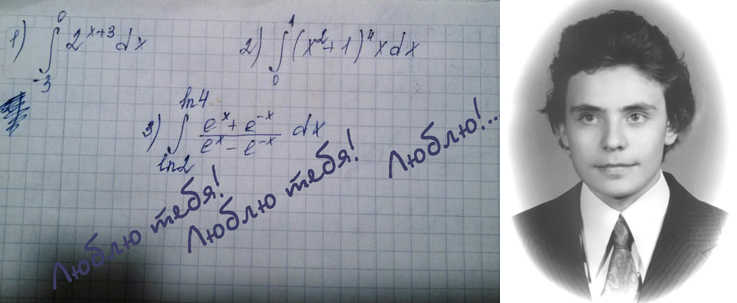 1) ∫₋₃⁰ 2ˣ⁺³ dx 2) ∫₀¹ (x²+1)⁴ x dx
3) ∫ₗₙ₂ˡⁿ⁴ (eˣ + e⁻ˣ)/(eˣ − e⁻ˣ) dx
Люблю тебя!
Люблю тебя!
Люблю!...